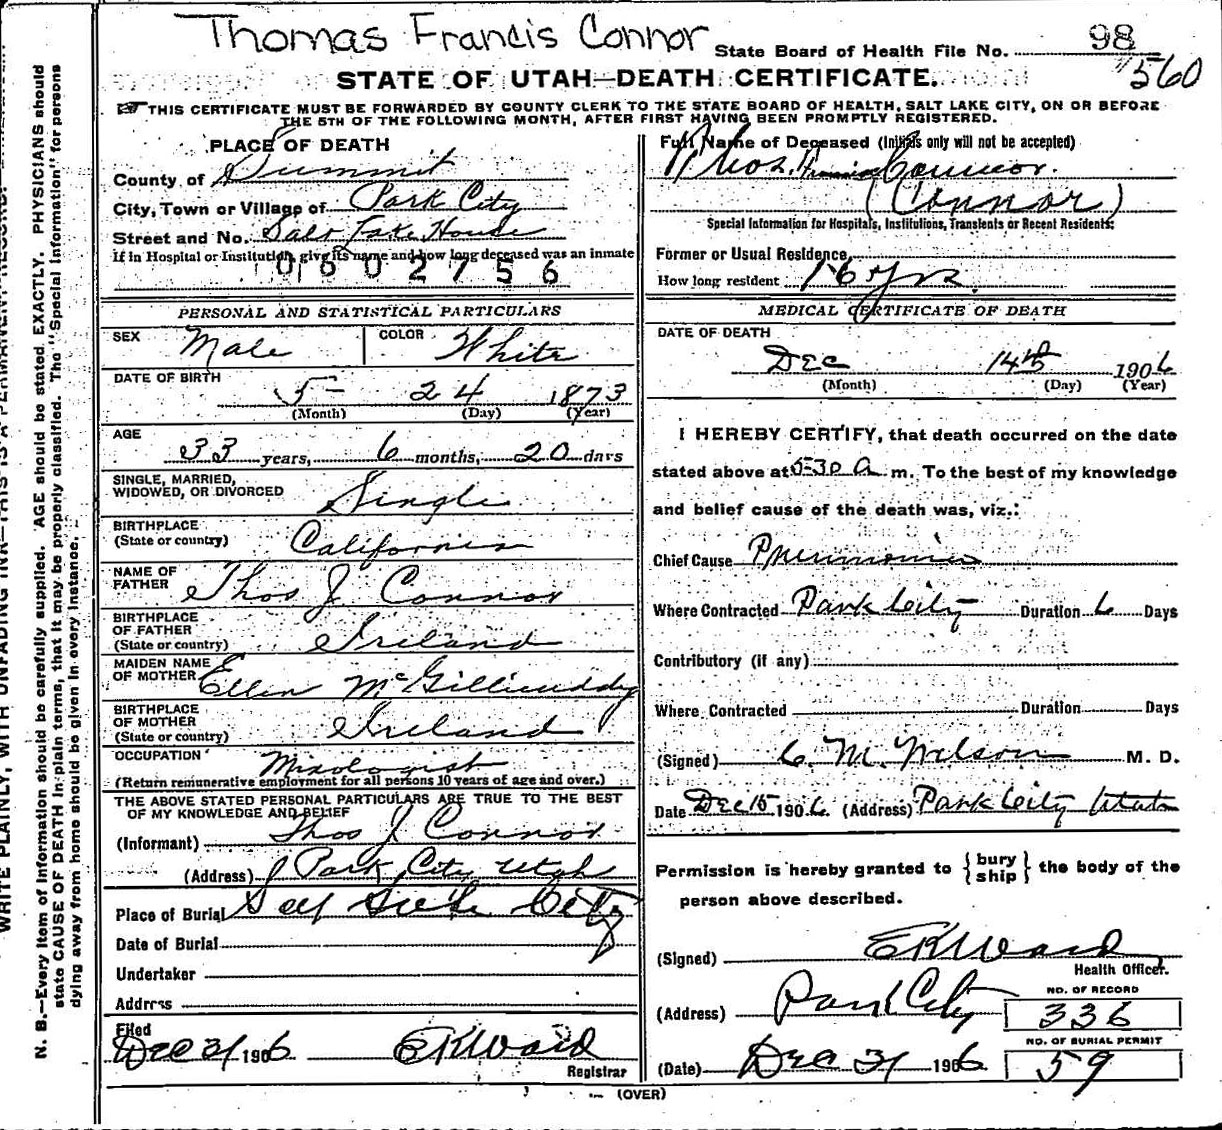 Thomas Francis Connor
State Board of Health File No. 98
560
STATE OF UTAH—DEATH CERTIFICATE.
THIS CERTIFICATE MUST BE FORWARDED BY COUNTY CLERK TO THE STATE BOARD OF HEALTH, SALT LAKE CITY, ON OR BEFORE
THE 5TH OF THE FOLLOWING MONTH, AFTER FIRST HAVING BEEN PROMPTLY REGISTERED.
PLACE OF DEATH
County of Summit
City, Town or Village of Park City
Street and No. Salt Lake House
If in Hospital or Institution, give its name and how long deceased was an inmate
0602756
Full Name of Deceased (Initials only will not be accepted)
Thos. Francis Connor.
(Connor)
Special Information for Hospitals, Institutions, Transients or Recent Residents:
Former or Usual Residence
How long resident 16 yrs.
PERSONAL AND STATISTICAL PARTICULARS
SEX Male COLOR White
DATE OF BIRTH
5 24 1873
(Month) (Day) (Year)
AGE
33 years, 6 months, 20 days
SINGLE, MARRIED,
WIDOWED, OR DIVORCED Single
BIRTHPLACE
(State or country) California
NAME OF
FATHER Thos J Connor
BIRTHPLACE
OF FATHER
(State or country) Ireland
MAIDEN NAME
OF MOTHER Ellen McGillicuddy
BIRTHPLACE
OF MOTHER
(State or country) Ireland
OCCUPATION Mixologist
(Return remunerative employment for all persons 10 years of age and over.)
THE ABOVE STATED PERSONAL PARTICULARS ARE TRUE TO THE BEST
OF MY KNOWLEDGE AND BELIEF
(Informant) Thos J Connor
(Address) Park City Utah
Place of Burial City
Date of Burial
Undertaker
Address
Filed
Dec 31 1906 E K Ward
Registrar
MEDICAL CERTIFICATE OF DEATH
DATE OF DEATH
Dec 14th 1906
(Month) (Day) (Year)
I HEREBY CERTIFY, that death occurred on the date
stated above at 5-30 a m. To the best of my knowledge
and belief cause of the death was, viz.:
Chief Cause Pneumonia
Where Contracted Park City Duration 6 Days
Contributory (if any)
Where Contracted Duration Days
(Signed) C. M. Wilson M. D.
Date Dec 15 1906. (Address) Park City Utah
Permission is hereby granted to {bury ship} the body of the
person above described.
(Signed) E K Ward
Health Officer.
(Address) Park City
NO. OF RECORD
336
NO. OF BURIAL PERMIT
59
(Date) Dec 31 1906
(OVER)
N. B.—Every item of information should be carefully supplied. AGE should be stated EXACTLY. PHYSICIANS should
state CAUSE OF DEATH in plain terms, that it may be properly classified. The "Special Information" for persons
dying away from home should be given in every instance.
WRITE PLAINLY, WITH UNFADING INK—THIS IS A PERMANENT RECORD.